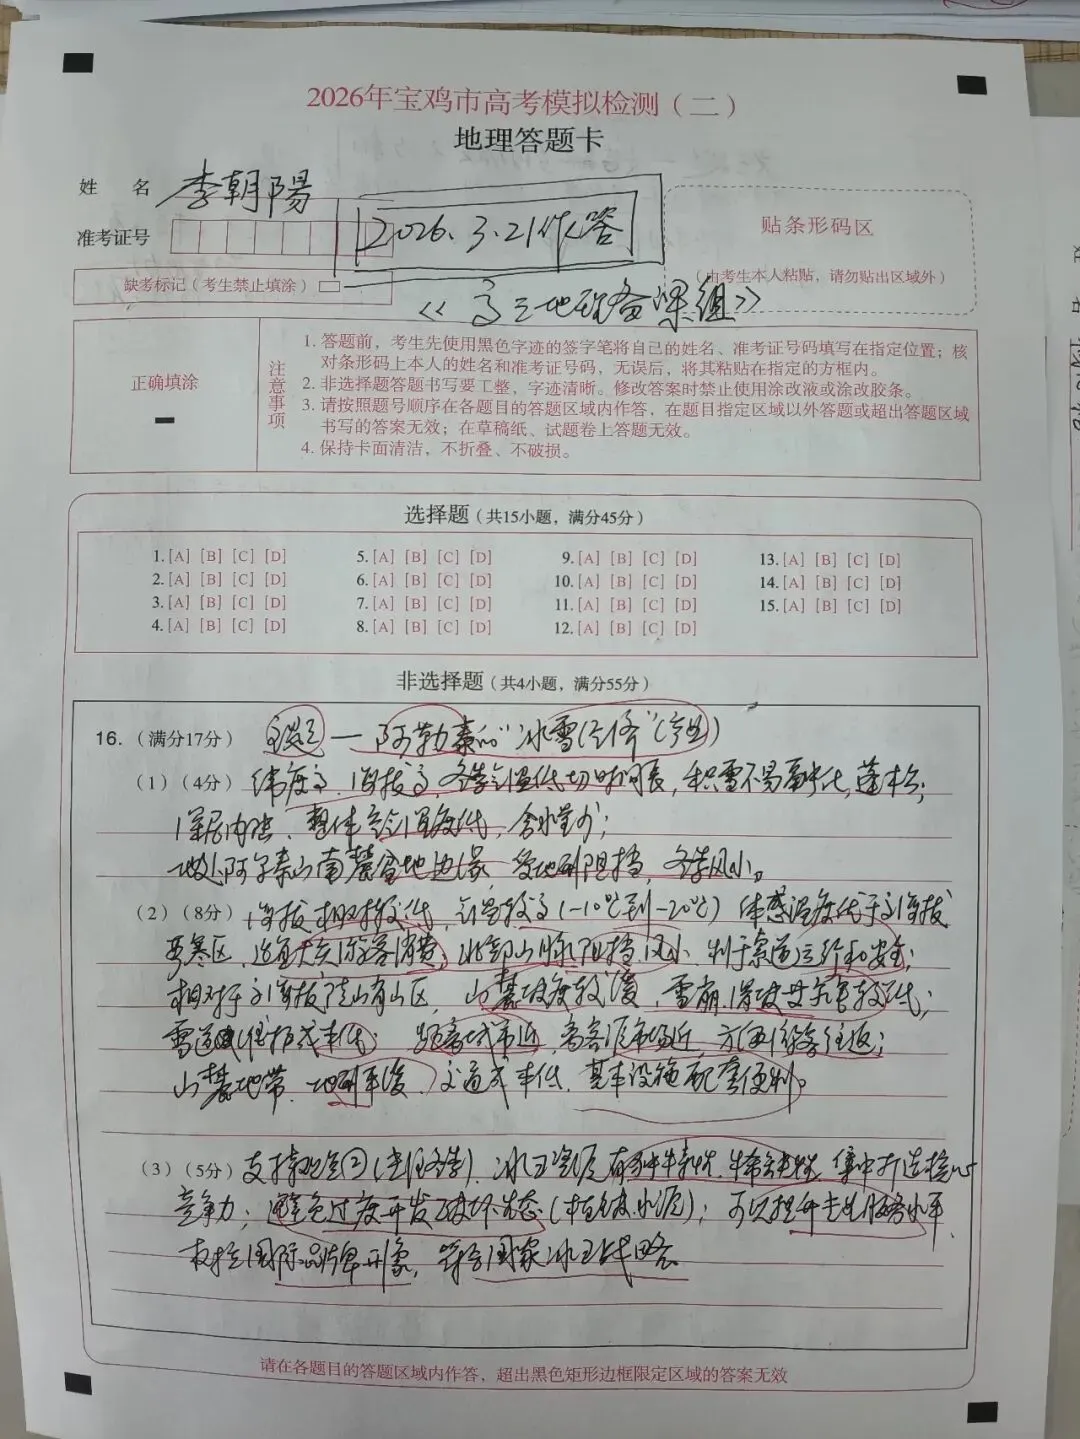 2026年宝鸡市高考模拟检测（二）
地理答题卡
姓 名 李朝陽
准考证号
2026.3.21作答
贴条形码区
（由考生本人粘贴，请勿贴出区域外）
缺考标记（考生禁止填涂）
《高三地理备课组》
正确填涂
注意事项
1. 答题前，考生先使用黑色字迹的签字笔将自己的姓名、准考证号码填写在指定位置；核
对条形码上本人的姓名和准考证号码，无误后，将其粘贴在指定的方框内。
2. 非选择题答题书写要工整，字迹清晰。修改答案时禁止使用涂改液或涂改胶条。
3. 请按照题号顺序在各题目的答题区域内作答，在题目指定区域以外答题或超出答题区域
书写的答案无效；在草稿纸、试题卷上答题无效。
4. 保持卡面清洁，不折叠、不破损。
选择题（共15小题，满分45分）
1. [A] [B] [C] [D] 5. [A] [B] [C] [D] 9. [A] [B] [C] [D] 13. [A] [B] [C] [D]
2. [A] [B] [C] [D] 6. [A] [B] [C] [D] 10. [A] [B] [C] [D] 14. [A] [B] [C] [D]
3. [A] [B] [C] [D] 7. [A] [B] [C] [D] 11. [A] [B] [C] [D] 15. [A] [B] [C] [D]
4. [A] [B] [C] [D] 8. [A] [B] [C] [D] 12. [A] [B] [C] [D]
非选择题（共4小题，满分55分）
16.（满分17分） 一 阿勒泰的“冰雪经济”（产业）
（1）（4分） 纬度高，海拔高，冬季气温低切时间长，积雪不易融化，蓬松；
深居内陆，整体空气湿度低，含水量少；
地处阿尔泰山南麓盆地边缘，受地形阻挡，冬季风小。
（2）（8分） 海拔相对较低，气温较高（-10℃到-20℃）体感温度优于高海拔
严寒区，适宜大众游客消费；北部山脉阻挡，风小，利于索道运行和安全；
相对于高海拔陡山有山区，山麓坡度较缓，雪崩、滑坡灾害较低；
雪道维护成本低；距离城市近，离客源市场近，方便游客往返；
山麓地带，地形平缓，交通成本低，基本设施配套便利。
（3）（5分） 支持观点②（专注冬季），冰雪资源有独特性，稀缺性，集中打造核心
竞争力；避免过度开发破坏生态（植被、水源）；可以提升专业服务水平，
树立国际品牌形象，符合国家冰雪战略。
请在各题目的答题区域内作答，超出黑色矩形边框限定区域的答案无效